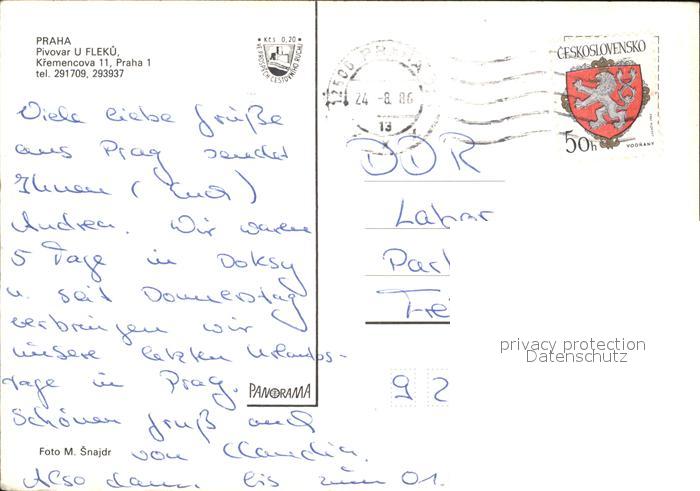 PRAHA
Pivovar U FLEKŮ,
Křemencova 11, Praha 1
tel. 291709, 293937
Kčs 0,20
VE PROSPĚCH CESTOVNÍHO RUCHU
24 -8. 86
13
ČESKOSLOVENSKO
50h
VODŇANY
Viele liebe Grüße
aus Prag sendet
Ihnen (Euch)
Andrea. Wir waren
5 Tage in Doksy
u. seit Donnerstag
verbringen wir
unsere letzten Urlaubs-
tage in Prag.
Schönen Gruß auch
von Claudia.
Also dann bis zum 01.
DDR
Labor
Par
Fre
92
privacy protection
Datenschutz
PANORAMA
Foto M. Šnajdr